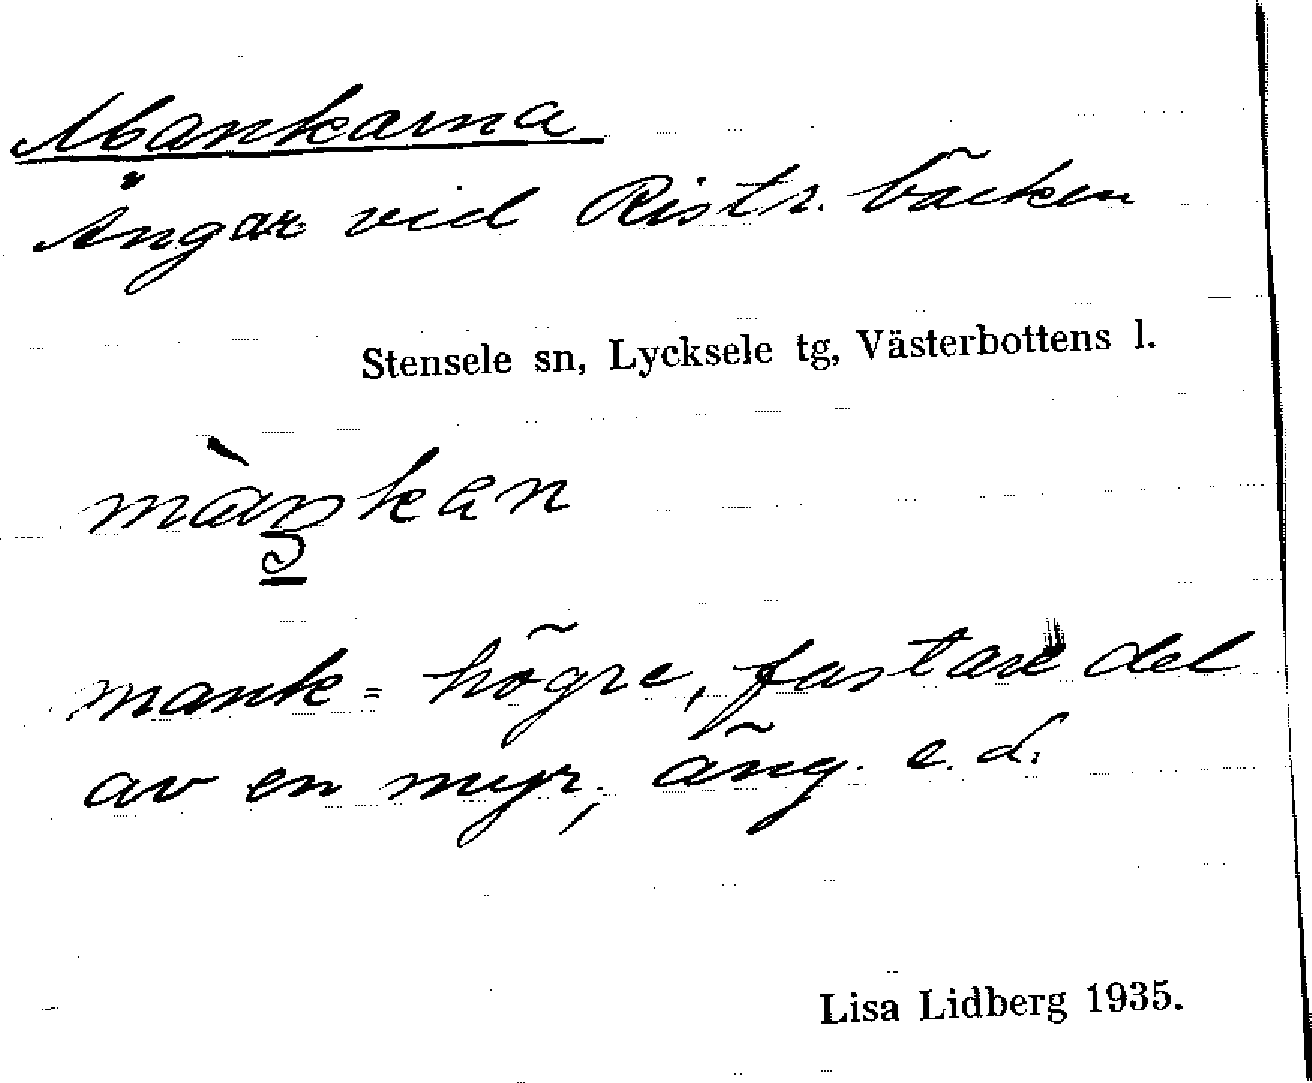 Mankarna
Ängar vid Ristr. bäcken
Stensele sn, Lycksele tg, Västerbottens l.
màŋkan
mank = högre, fastare del
av en myr, äng. e. d.
Lisa Lidberg 1935.